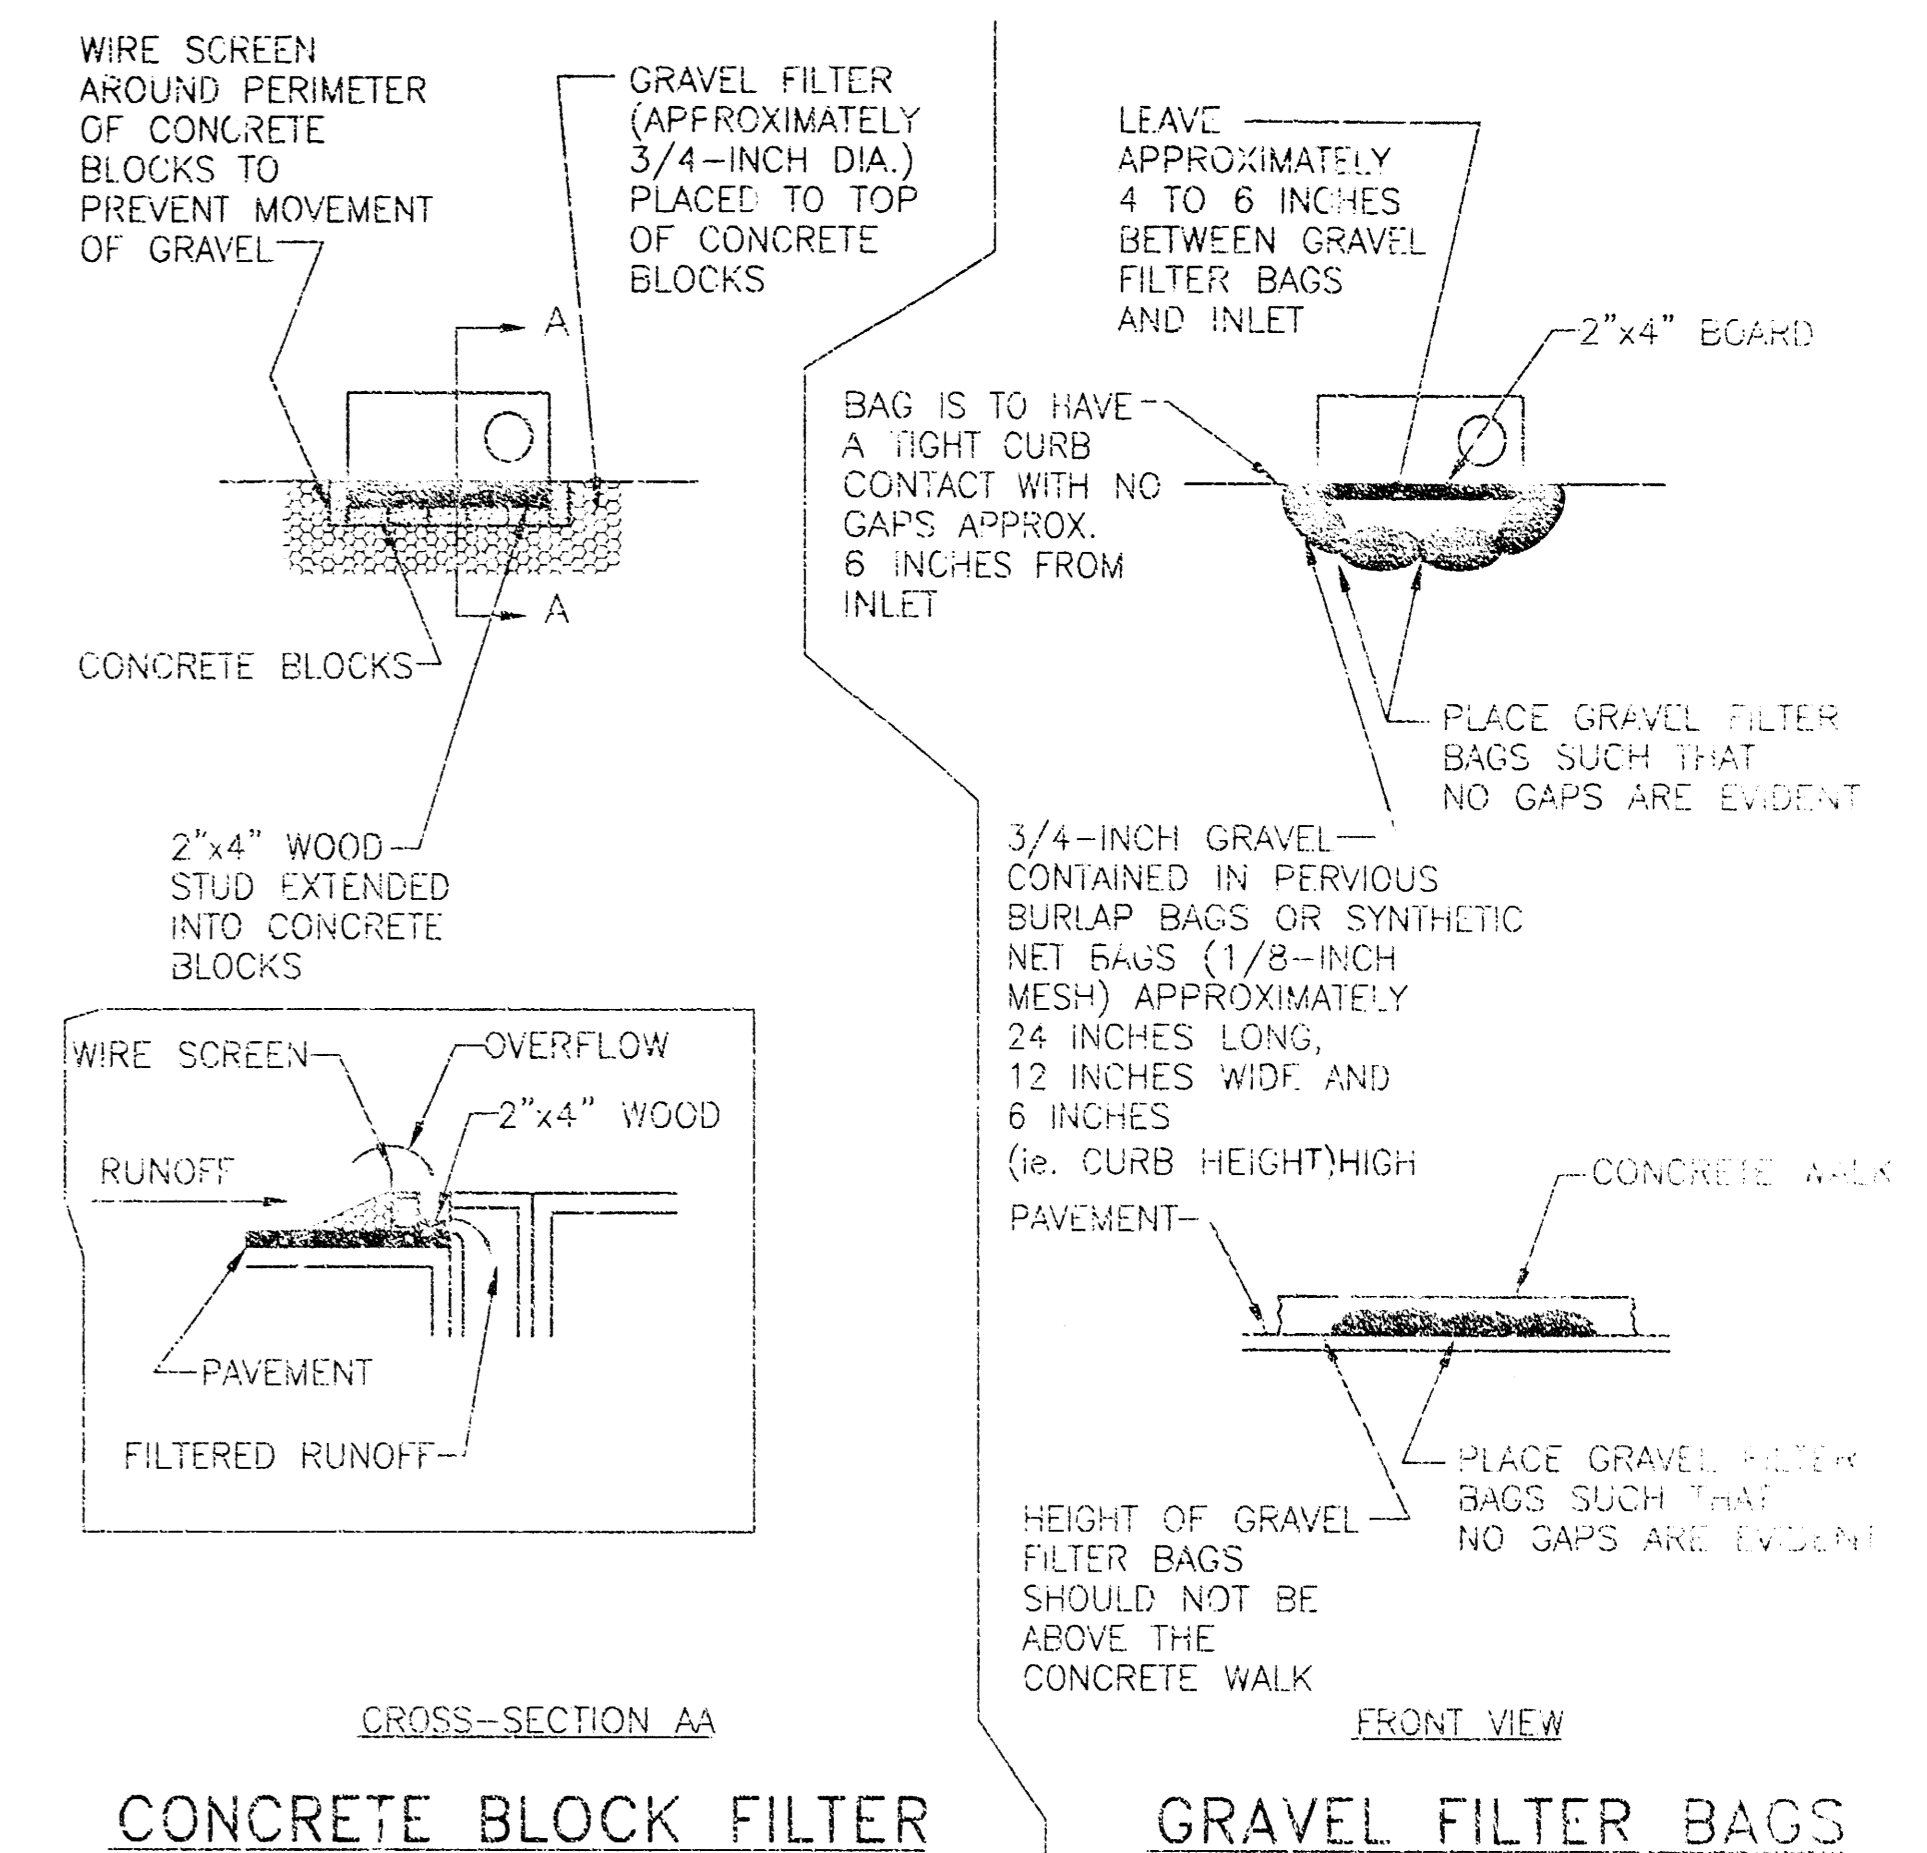 WIRE SCREEN
AROUND PERIMETER
OF CONCRETE
BLOCKS TO
PREVENT MOVEMENT
OF GRAVEL
GRAVEL FILTER
(APPROXIMATELY
3/4-INCH DIA.)
PLACED TO TOP
OF CONCRETE
BLOCKS
A
A
CONCRETE BLOCKS
2"x4" WOOD
STUD EXTENDED
INTO CONCRETE
BLOCKS
WIRE SCREEN
OVERFLOW
2"x4" WOOD
RUNOFF
PAVEMENT
FILTERED RUNOFF
CROSS-SECTION AA
CONCRETE BLOCK FILTER
LEAVE
APPROXIMATELY
4 TO 6 INCHES
BETWEEN GRAVEL
FILTER BAGS
AND INLET
2"x4" BOARD
BAG IS TO HAVE
A TIGHT CURB
CONTACT WITH NO
GAPS APPROX.
6 INCHES FROM
INLET
PLACE GRAVEL FILTER
BAGS SUCH THAT
NO GAPS ARE EVIDENT
3/4-INCH GRAVEL
CONTAINED IN PERVIOUS
BURLAP BAGS OR SYNTHETIC
NET BAGS (1/8-INCH
MESH) APPROXIMATELY
24 INCHES LONG,
12 INCHES WIDE AND
6 INCHES
(ie. CURB HEIGHT)HIGH
PAVEMENT
CONCRETE WALK
PLACE GRAVEL FILTER
BAGS SUCH THAT
NO GAPS ARE EVIDENT
HEIGHT OF GRAVEL
FILTER BAGS
SHOULD NOT BE
ABOVE THE
CONCRETE WALK
FRONT VIEW
GRAVEL FILTER BAGS